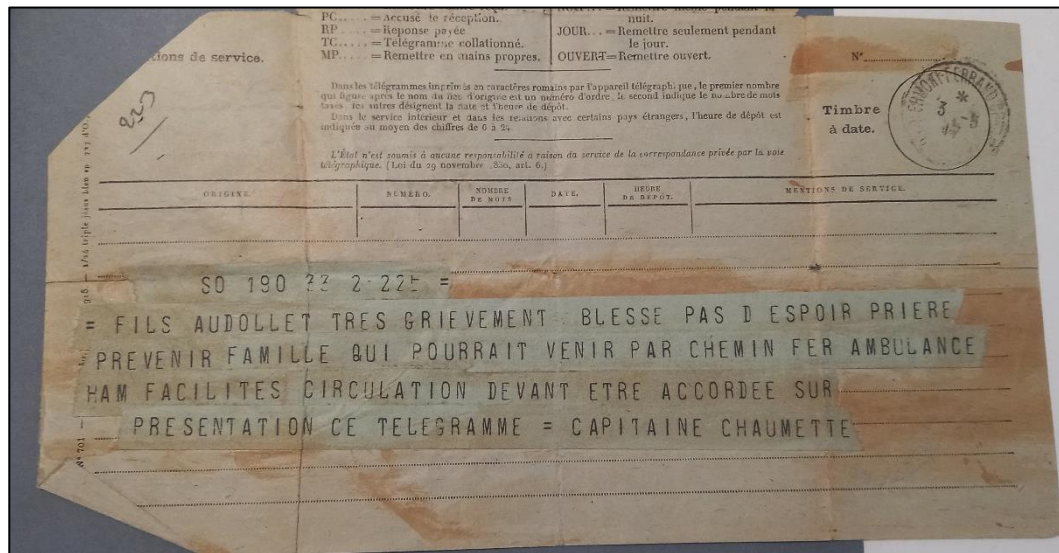 PC..... = Accusé de réception.
RP..... = Réponse payée
TC..... = Télégramme collationné.
MP..... = Remettre en mains propres.
nuit.
JOUR... = Remettre seulement pendant
le jour.
OUVERT = Remettre ouvert.
tions de service.
N°
223
Dans les télégrammes imprimés en caractères romains par l'appareil télégraphique, le premier nombre
qui figure après le nom du lieu d'origine est un numéro d'ordre, le second indique le nombre de mots
taxés, les autres désignent la date et l'heure de dépôt.
Dans le service intérieur et dans les relations avec certains pays étrangers, l'heure de dépôt est
indiquée au moyen des chiffres de 0 à 24.
L'État n'est soumis à aucune responsabilité à raison du service de la correspondance privée par la voie
télégraphique. (Loi du 29 novembre 1850, art. 6.)
Timbre
à date.
CLERMONT-FERRAND
3
ORIGINE.
NUMÉRO.
NOMBRE
DE MOTS
DATE.
HEURE
DE DÉPÔT.
MENTIONS DE SERVICE.
SO 190 2 =
= FILS AUDOLLET TRES GRIEVEMENT BLESSE PAS D ESPOIR PRIERE
PREVENIR FAMILLE QUI POURRAIT VENIR PAR CHEMIN FER AMBULANCE
HAM FACILITES CIRCULATION DEVANT ETRE ACCORDEE SUR
PRESENTATION CE TELEGRAMME = CAPITAINE CHAUMETTE
N° 701